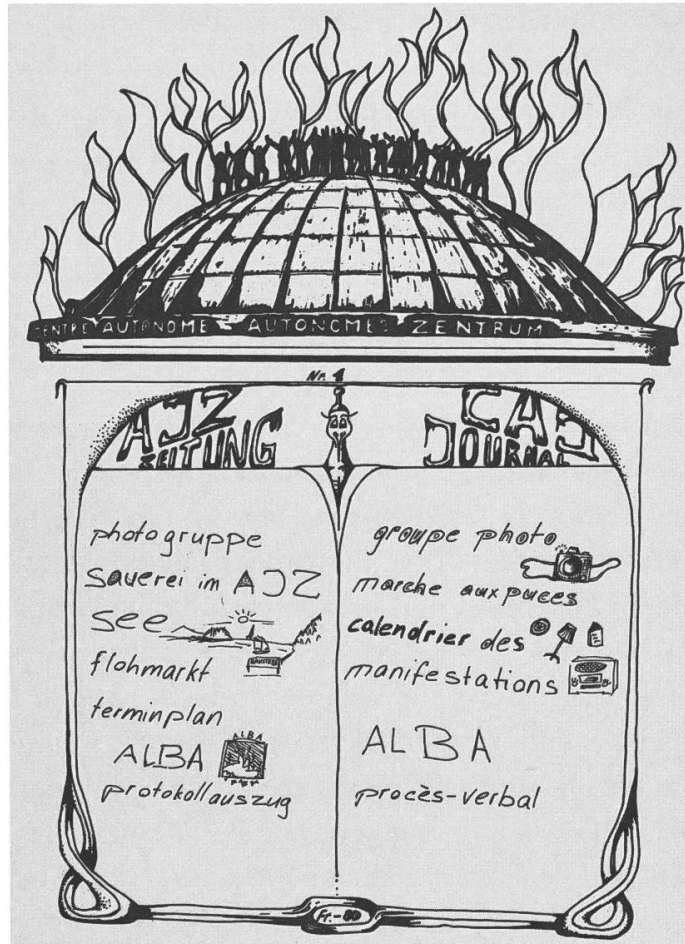 CENTRE AUTONOME AUTONOMES ZENTRUM
Nr. 1
AJZ
ZEITUNG
CAJ
JOURNAL
photogruppe
Sauerei im AJZ
see
flohmarkt
terminplan
ALBA
ALBA
protokollauszug
groupe photo
marche aux puces
calendrier des
manifestations
ALBA
procès-verbal
Fr.-80